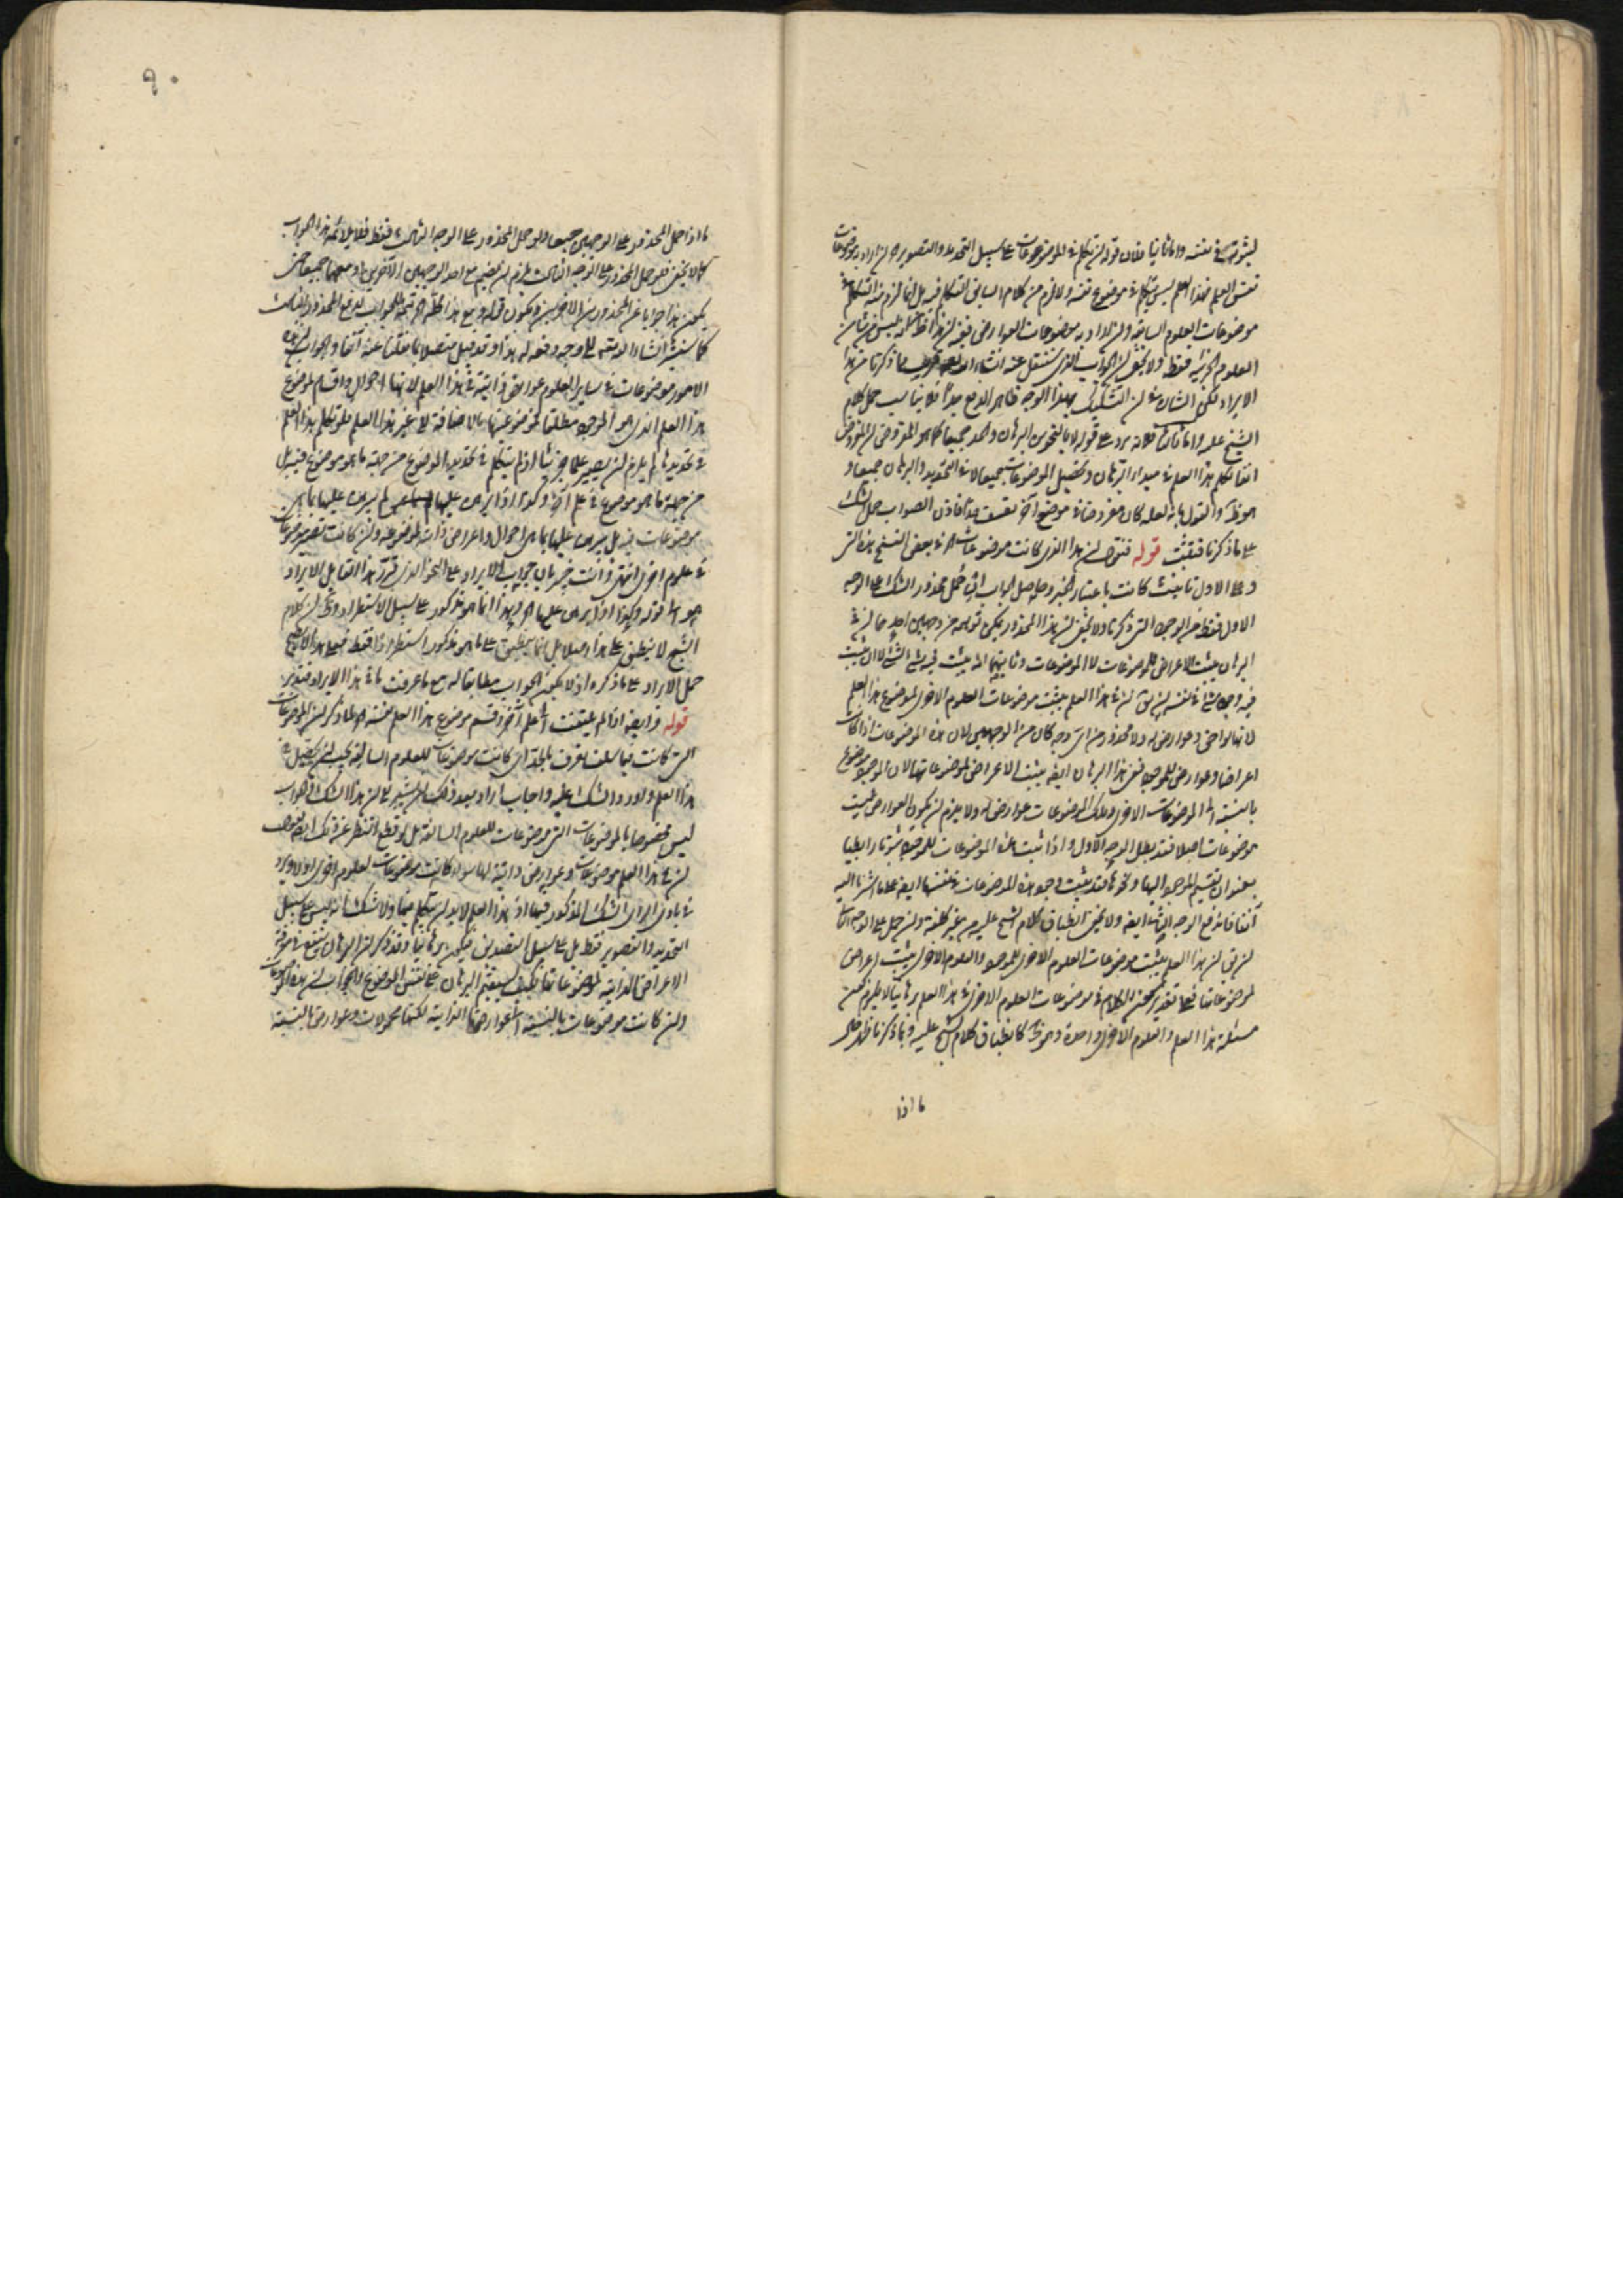 في نفسه واما ثانيا فلان قوله ان يتكلم في الموضوعات على سبيل التحديد والتصوير ان اراد بموضوعات
نفس العلم فهذا العلم ليس يتكلم في موضوع نفسه ولا لزم من كلام السابق التكلم فيه بل انما لزم منه التكلم في
موضوعات العلوم السابقة وان اراد به موضوعات العوارض ففيه ان
العلوم الجزئية فقط ولا يخفى ان الجواب الذي سننقل عنه ان شاء الله مما ذكرنا من هذا
الايراد لكن الشان في ان التشكيك بهذا الوجه ظاهر الدفع جدا فلا يناسب حمل كلام
الشيخ عليه واما ثالثا فلانه يرد على قوله لا بالنحو من البرهان والحد جميعا كما هو المفروض
تكلم هذا العلم في البرهان وتحصيل الموضوعات جميعا لا في التحديد والبرهان جميعا و
والقول بانه لعله كان مفروضا في موضع آخر تعسف جدا فاذن الصواب حمل الشك
على ما ذكرنا فتثبت قوله فنقول ان هذا الذي كانت موضوعات اه في بعض النسخ هذه التي
وعلى الاول تانيث كانت باعتبار الخبر وحاصل الجواب انه ان حمل محذور الشك على الوجه
الاول فقط من الوجوه التي ذكرنا ولا يخفى ان هذا المحذور يمكن توهمه من وجهين احدهما ان في
البرهان يثبت الاعراض للموضوعات لا الموضوعات وثانيهما انه يثبت فيه شيء لشيء لا ان يثبت
فيه وجود شيء في نفسه ان في هذا العلم يثبت موضوعات العلوم الاخرى لموضوع هذا العلم
لانها لواحق وعوارض له ولا محذور من اي وجه كان من الوجهين لان هذه الموضوعات اذا كانت
اعراضا وعوارض للموجود ففي هذا البرهان ايضا يثبت الاعراض لموضوعاتها لان الموجود موضوع
بالنسبة الى الموضوعات الاخرى وتلك الموضوعات عوارض له ولا يلزم ان يكون العوارض ليست
موضوعات اصلا فقد بطل الوجه الاول واذا ثبت هذه الموضوعات للموجود ثبوتا رابطيا
بعنوان تقسيم الموجود اليها ونحوها فقد يثبت وجود هذه الموضوعات في نفسها ايضا على ما اشرنا اليه
آنفا فاندفع الوجه الثاني ايضا ولا يخفى انطباق كلام الشيخ عليه من غير كلفة وان حمل على الوجه الثالث
ان هذا العلم يثبت موضوعات العلوم الاخرى للموجود والعلوم الاخرى يثبت اعراض
لموضوعاتها فعلى تقدير كون الكلام في موضوعات العلوم الاخرى في هذا العلم برهانيا لا يلزم كون
مسئلة هذا العلم والعلوم الاخرى واحدة وهو كما انطباق كلام الشيخ عليه وبما ذكرنا ظهر حال
ما اذا
٩٠
ما اذا حمل المحذور على الوجهين جميعا ولو حمل المحذور على الوجه الثالث فقط فلا يلائمه هذا الجواب
كما لا يخفى فلو حمل المحذور على الوجه الثالث لزم ان يضم مع احد الوجهين الآخرين او معهما جميعا حتى
يكون هذا جوابا عن المحذورين الآخرين ويكون قوله ومع هذا كله اه تتمة للجواب لدفع المحذور الثالث
كما سنشير ان شاء الله الى وجه دفعه له هذا وقد قيل متصلا بما نقلنا عنه آنفا والجواب ان هذه
الامور موضوعات في سائر العلوم عوارض ذاتية في هذا العلم لانها احوال واقسام لموضوع
هذا العلم الذي هو الموجود مطلقا فموضوعيتها بالاضافة الى غير هذا العلم فلو تكلم هذا العلم
في تحديدها لم يلزم ان يصير علما جزئيا اذ لم يتكلم في تحديد الموضوع من جهة ما هو موضوع فيه بل
من جهة ما هو موضوع في علم آخر وكذا اذا يبرهن عليها لم يبرهن عليها بما هي
موضوعات فيه بل يبرهن عليها بما هي احوال واعراض ذات لموضوعه وان كانت تصير موضوعات
في علوم اخرى انتهى وانت خبير بان جواب الايراد على النحو الذي قرره هذا القايل الايراد
هو قوله وكذا اذا يبرهن عليها اه وهذا انما هو مذكور على سبيل الاستطراد ولكن كلام
الشيخ لا ينطبق على هذا اصلا بل انما ينطبق على ما هو مذكور استطرادا فقط فعلى هذا لا يصح
حمل الايراد على ما ذكره اذ لا يكون الجواب مطابقا له مع ما عرفت ما في هذا الايراد فتدبر
قوله وايضا اذا لم يلتفت الى علم آخر وقسم موضوع هذا العلم نفسه اه لما ذكر ان الموضوعات
التي كانت فيما سلف تعرف بالجملة اي كانت موضوعات للعلوم السابقة يجب ان يحصل في
هذا العلم واورد الشك عليه واجاب اراد بعد ذلك ان يشير الى ان هذا الشك والجواب
ليس مخصوصا بالموضوعات التي موضوعات للعلوم السالفة بل لو قطع النظر عن ذلك ايضا نقول
ان في هذا العلم موضوعات وعوارض ذاتية لها سواء كانت موضوعات لعلوم اخرى اولا ويرد
في بادي الراي الشك المذكور فيها اذ هذا العلم لا بد ان يتكلم فيها ولا شك انه ليس على سبيل
التحديد والتصوير فقط بل على سبيل التصديق فيكون برهانيا وقد ذكر ان البرهان
الاعراض الذاتية لموضوعاتها فكيف يستقيم البرهان على نفس الموضوع والجواب ان هذه الموضوعات
وان كانت موضوعات بالنسبة الى عوارضها الذاتية لكنها محمولات وعوارض بالنسبة